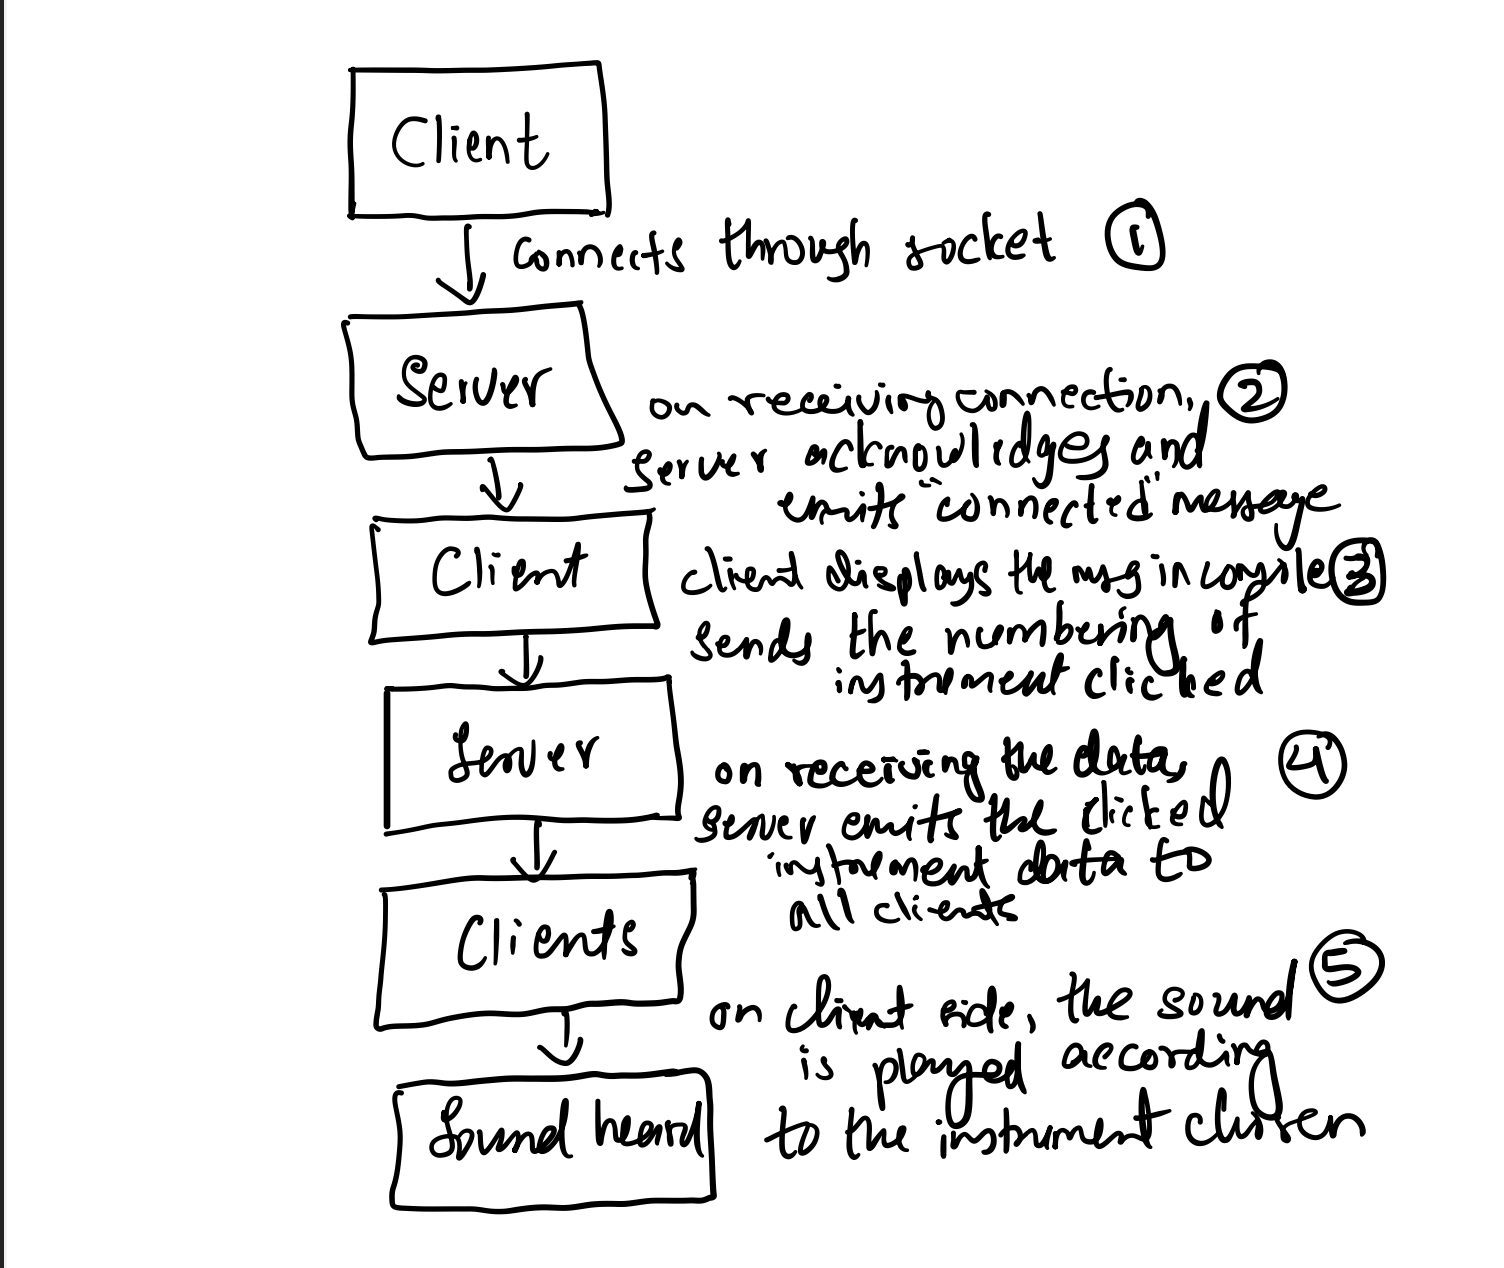 Client
connects through socket 1
Server
on receiving connection, 2
server acknowledges and
emits "connected" message
Client
client displays the msg in console 3
sends the numbering of
instrument clicked
Server
on receiving the data, 4
server emits the clicked
instrument data to
all clients
Clients
5
on client side, the sound
is played according
to the instrument chosen
Sound heard